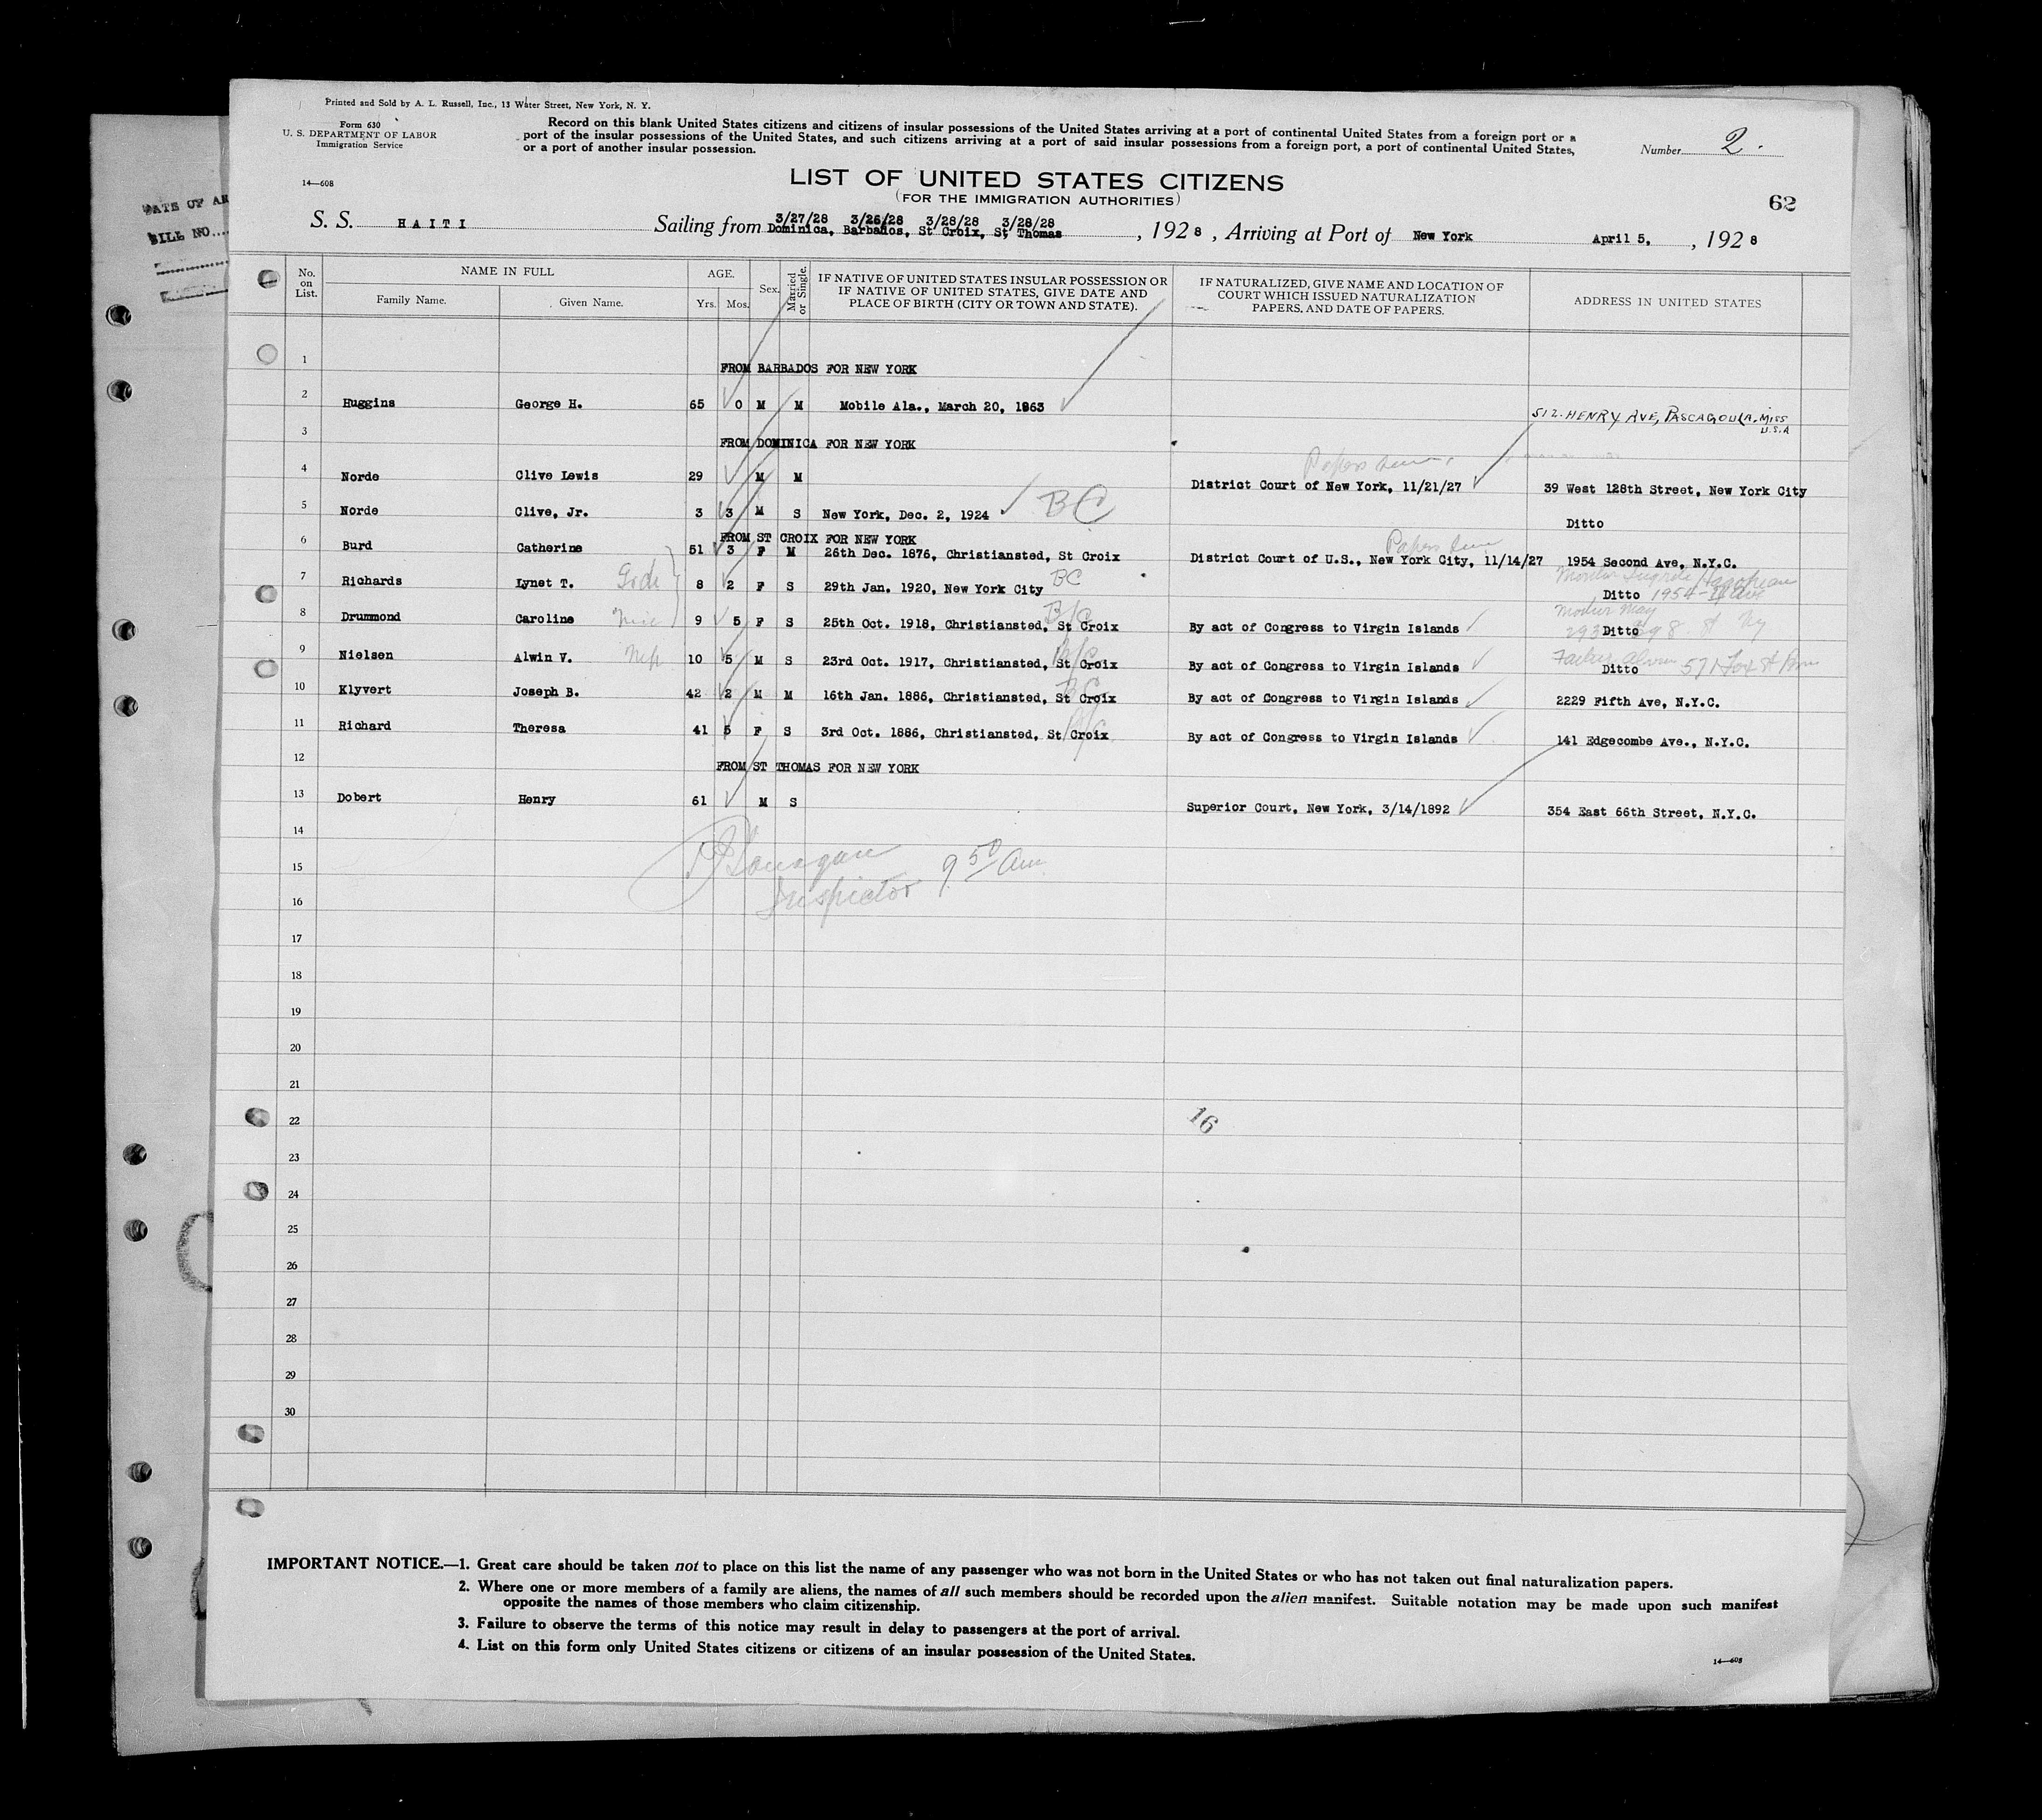 Printed and Sold by A. L. Russell, Inc., 13 Water Street, New York, N. Y.
Form 630
U. S. DEPARTMENT OF LABOR
Immigration Service
14—608
Record on this blank United States citizens and citizens of insular possessions of the United States arriving at a port of continental United States from a foreign port or a
port of the insular possessions of the United States, and such citizens arriving at a port of said insular possessions from a foreign port, a port of continental United States,
or a port of another insular possession.
Number 2.
LIST OF UNITED STATES CITIZENS
(FOR THE IMMIGRATION AUTHORITIES)
62
DATE OF AR
BILL NO....
3/27/28 3/26/28 3/28/28 3/28/28
S. S. HAITI Sailing from Dominica, Barbados, St Croix, St Thomas, 1928, Arriving at Port of New York April 5, 1928
No. on List. NAME IN FULL Family Name. Given Name. AGE. Yrs. Mos. Sex. Married or Single. IF NATIVE OF UNITED STATES INSULAR POSSESSION OR IF NATIVE OF UNITED STATES, GIVE DATE AND PLACE OF BIRTH (CITY OR TOWN AND STATE). IF NATURALIZED, GIVE NAME AND LOCATION OF COURT WHICH ISSUED NATURALIZATION PAPERS, AND DATE OF PAPERS. ADDRESS IN UNITED STATES
1 FROM BARBADOS FOR NEW YORK
2 Huggins George H. 65 0 M M Mobile Ala., March 20, 1863 512. HENRY AVE, PASCAGOULA. MISS U.S.A
3 FROM DOMINICA FOR NEW YORK
Papers
4 Norde Clive Lewis 29 M M District Court of New York, 11/21/27 39 West 128th Street, New York City
5 Norde Clive, Jr. 3 3 M S New York, Dec. 2, 1924 BC Ditto
FROM ST CROIX FOR NEW YORK
Papers
6 Burd Catherine 51 3 F M 26th Dec. 1876, Christiansted, St Croix District Court of U.S., New York City, 11/14/27 1954 Second Ave, N.Y.C.
Mother
7 Richards Lynet T. 8 2 F S 29th Jan. 1920, New York City BC Ditto 1954-
Mother May
8 Drummond Caroline 9 5 F S 25th Oct. 1918, Christiansted, St Croix B/C By act of Congress to Virgin Islands Ditto
Father Alvin
9 Nielsen Alwin V. Neph 10 5 M S 23rd Oct. 1917, Christiansted, St Croix B/C By act of Congress to Virgin Islands Ditto 571 Fox St
10 Klyvert Joseph B. 42 2 M M 16th Jan. 1886, Christiansted, St Croix BC By act of Congress to Virgin Islands 2229 Fifth Ave, N.Y.C.
11 Richard Theresa 41 5 F S 3rd Oct. 1886, Christiansted, St Croix B/C By act of Congress to Virgin Islands 141 Edgecombe Ave., N.Y.C.
12 FROM ST THOMAS FOR NEW YORK
13 Dobert Henry 61 M S Superior Court, New York, 3/14/1892 354 East 66th Street, N.Y.C.
14
15
Inspector 9 50 Am
16
17
18
19
20
21
22
16
23
24
25
26
27
28
29
30
IMPORTANT NOTICE.—1. Great care should be taken not to place on this list the name of any passenger who was not born in the United States or who has not taken out final naturalization papers.
2. Where one or more members of a family are aliens, the names of all such members should be recorded upon the alien manifest. Suitable notation may be made upon such manifest
opposite the names of those members who claim citizenship.
3. Failure to observe the terms of this notice may result in delay to passengers at the port of arrival.
4. List on this form only United States citizens or citizens of an insular possession of the United States.
14—608